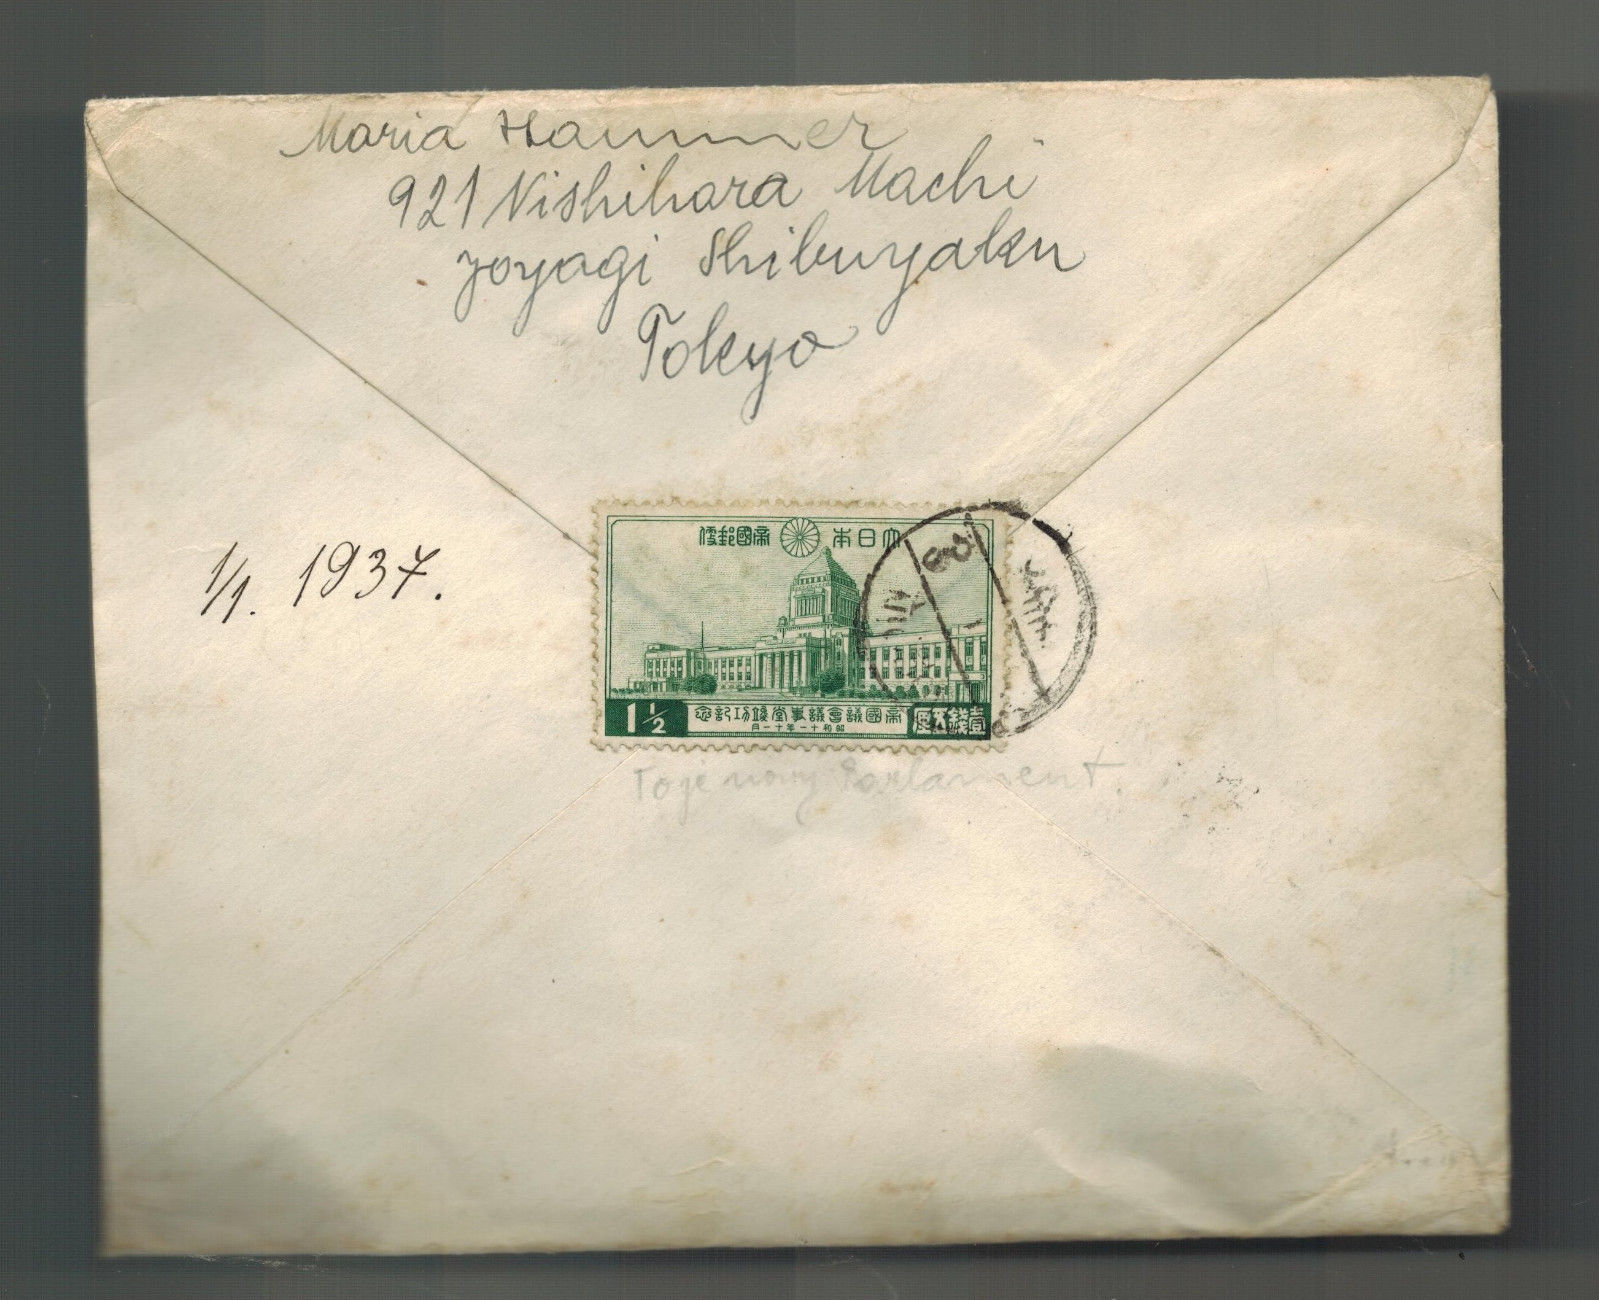 Maria Hammer
921 Nishihara Machi
Yoyagi Shibuyaku
Tokyo
1/1. 1937.
大日本帝國郵便
帝國議會議事堂竣功記念
昭和十一年十一月
1 1/2
壹錢五厘
To je nový Parlament.